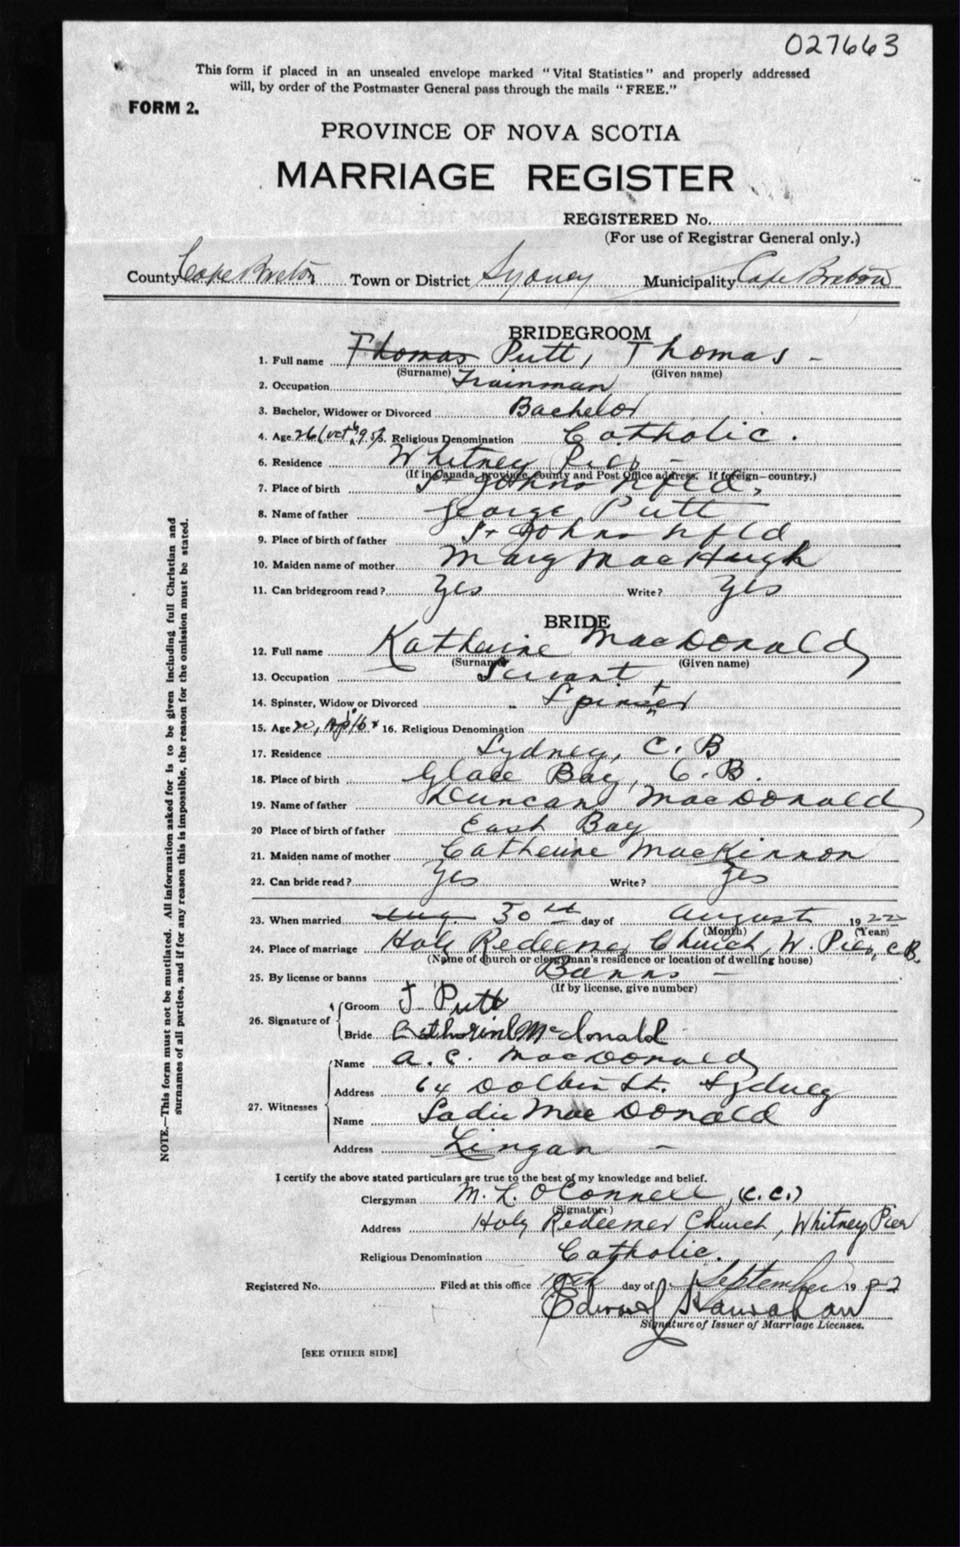 027663
This form if placed in an unsealed envelope marked "Vital Statistics" and properly addressed
will, by order of the Postmaster General pass through the mails "FREE."
FORM 2.
PROVINCE OF NOVA SCOTIA
MARRIAGE REGISTER
REGISTERED No.
(For use of Registrar General only.)
County Cape Breton Town or District Sydney Municipality Cape Breton
BRIDEGROOM
1. Full name Thomas Putt, Thomas -
(Surname) (Given name)
2. Occupation Trainman
3. Bachelor, Widower or Divorced Bachelor
4. Age 26 (Oct 5. Religious Denomination Catholic.
6. Residence Whitney Pier -
(If in Canada, province, county and Post Office address. If foreign—country.)
7. Place of birth St Johns Nfld,
8. Name of father George Putt
9. Place of birth of father St Johns Nfld
10. Maiden name of mother Mary MacHugh
11. Can bridegroom read? Yes Write? Yes
BRIDE
12. Full name Katherine MacDonald
(Surname) (Given name)
13. Occupation Servant,
14. Spinster, Widow or Divorced Spinster
15. Age 16. Religious Denomination
17. Residence Sydney, C. B
18. Place of birth Glace Bay, C. B.
19. Name of father Duncan MacDonald
20 Place of birth of father East Bay
21. Maiden name of mother Catherine MacKinnon
22. Can bride read? Yes Write? Yes
23. When married Aug. 30th day of August 1922
(Month) (Year)
24. Place of marriage Holy Redeemer Church, W. Pier, C B.
(Name of church or clergyman's residence or location of dwelling house)
25. By license or banns Banns -
(If by license, give number)
26. Signature of
Groom J. Putt
Bride Catherine McDonald
27. Witnesses
Name A. C. MacDonald
Address 64 Dolbin St. Sydney
Name Sadie MacDonald
Address Lingan -
I certify the above stated particulars are true to the best of my knowledge and belief.
Clergyman M. L. O'Connell, (C.C.)
(Signature)
Address Holy Redeemer Church, Whitney Pier
Religious Denomination Catholic.
Registered No. Filed at this office 10th day of September 1922
Edward Hanrahan
Signature of Issuer of Marriage Licenses.
[SEE OTHER SIDE]
NOTE.—This form must not be mutilated. All information asked for is to be given including full Christian and
surnames of all parties, and if for any reason this is impossible, the reason for the omission must be stated.